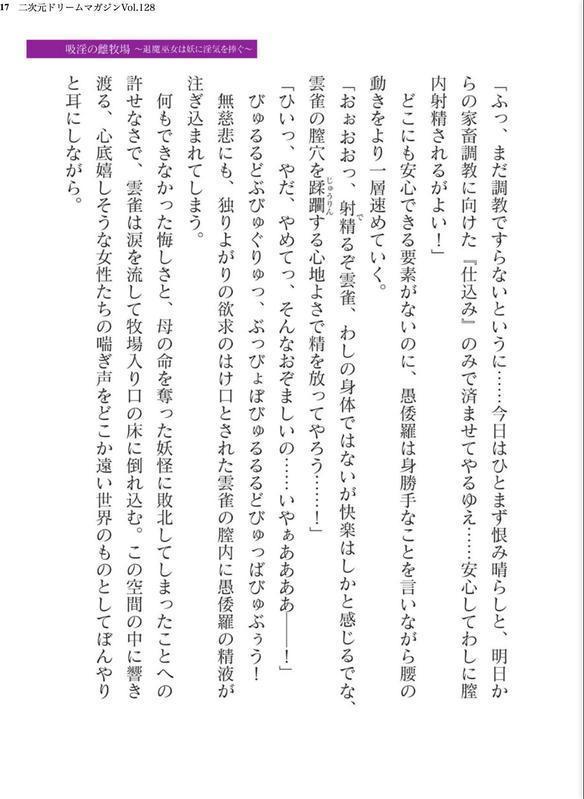 17 二次元ドリームマガジンVol.128
吸淫の雌牧場 ～退魔巫女は妖に淫気を捧ぐ～
「ふっ、まだ調教ですらないというに……今日はひとまず恨み晴らしと、明日か
らの家畜調教に向けた『仕込み』のみで済ませてやるゆえ……安心してわしに膣
内射精されるがよい！」
どこにも安心できる要素がないのに、愚倭羅は身勝手なことを言いながら腰の
動きをより一層速めていく。
「おぉおおっ、射精るぞ雲雀、わしの身体ではないが快楽はしかと感じるでな、
雲雀の膣穴を蹂躙する心地よさで精を放ってやろう……！」
「ひいっ、やだ、やめてっ、そんなおぞましいの……いやぁあああ――！」
びゅるるどぷびゅぐりゅっ、ぶっぴょぽびゅるるるどびゅっばびゅぶぅう！
無慈悲にも、独りよがりの欲求のはけ口とされた雲雀の膣内に愚倭羅の精液が
注ぎ込まれてしまう。
何もできなかった悔しさと、母の命を奪った妖怪に敗北してしまったことへの
許せなさで、雲雀は涙を流して牧場入り口の床に倒れ込む。この空間の中に響き
渡る、心底嬉しそうな女性たちの喘ぎ声をどこか遠い世界のものとしてぼんやり
と耳にしながら。